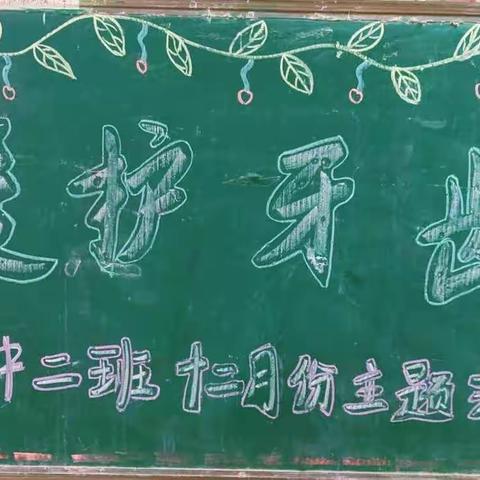 护牙齿
二班 十二月份主题